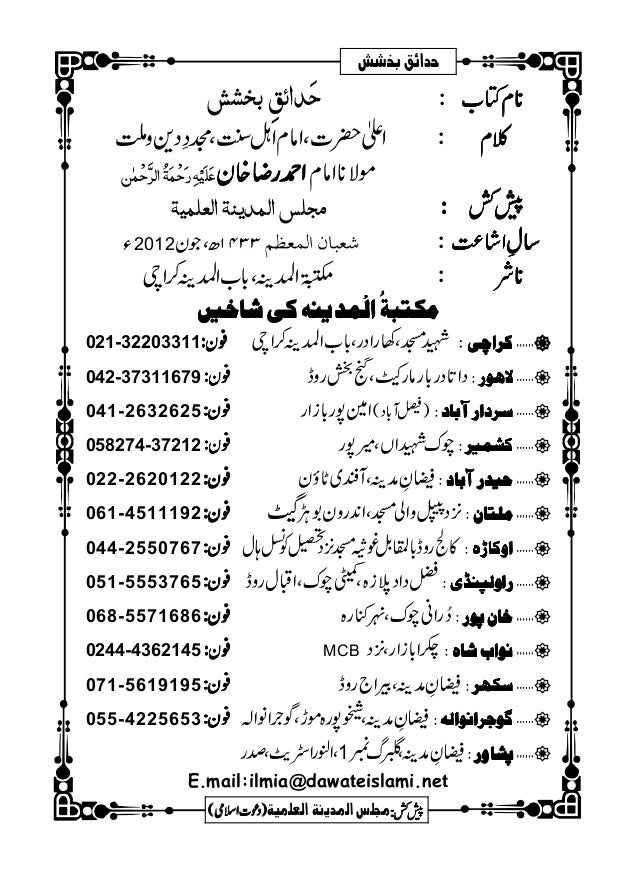 حدائق بخشش
نام کتاب : حَدائقِ بخشش
کلام : اعلیٰ حضرت، امام اَہلِ سنت، مجددِ دین وملت
مولانا امام احمد رضا خان عَلَیْہِ رَحْمَۃُ الرَّحْمٰن
پیش کش : مجلس المدینۃ العلمیۃ
سالِ اشاعت : شعبان المعظم ۱۴۳۳ھ، جون 2012ء
ناشر : مکتبۃ المدینہ، باب المدینہ کراچی
مکتبۃُ المدینہ کی شاخیں
.....کراچی : شہید مسجد، کھارادر، باب المدینہ کراچی فون: 021-32203311
.....لاھور : داتا دربار مارکیٹ، گنج بخش روڈ فون: 042-37311679
.....سردار آباد : (فیصل آباد) امین پور بازار فون: 041-2632625
.....کشمیر : چوک شہیداں، میر پور فون: 058274-37212
.....حیدر آباد : فیضانِ مدینہ، آفندی ٹاؤن فون: 022-2620122
.....ملتان : نزد پیپل والی مسجد، اندرون بوہڑ گیٹ فون: 061-4511192
.....اوکاڑہ : کالج روڈ بالمقابل غوثیہ مسجد نزد تحصیل کونسل ہال فون: 044-2550767
.....راولپنڈی : فضل داد پلازہ، کمیٹی چوک، اقبال روڈ فون: 051-5553765
.....خان پور : دُرانی چوک، نہر کنارہ فون: 068-5571686
.....نواب شاہ : چکرا بازار، نزد MCB فون: 0244-4362145
.....سکھر : فیضانِ مدینہ، بیراج روڈ فون: 071-5619195
.....گوجرانوالہ : فیضانِ مدینہ، شیخوپورہ موڑ، گوجرانوالہ فون: 055-4225653
.....پشاور : فیضانِ مدینہ، گلبرگ نمبر 1، النور اسٹریٹ، صدر
E.mail:ilmia@dawateislami.net
پیش کش: مجلس المدینۃ العلمیۃ (دعوتِ اسلامی)